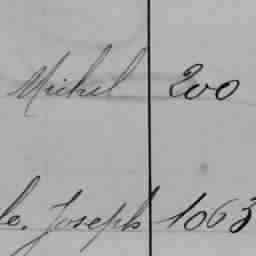 Michel 200
le. Joseph 1063